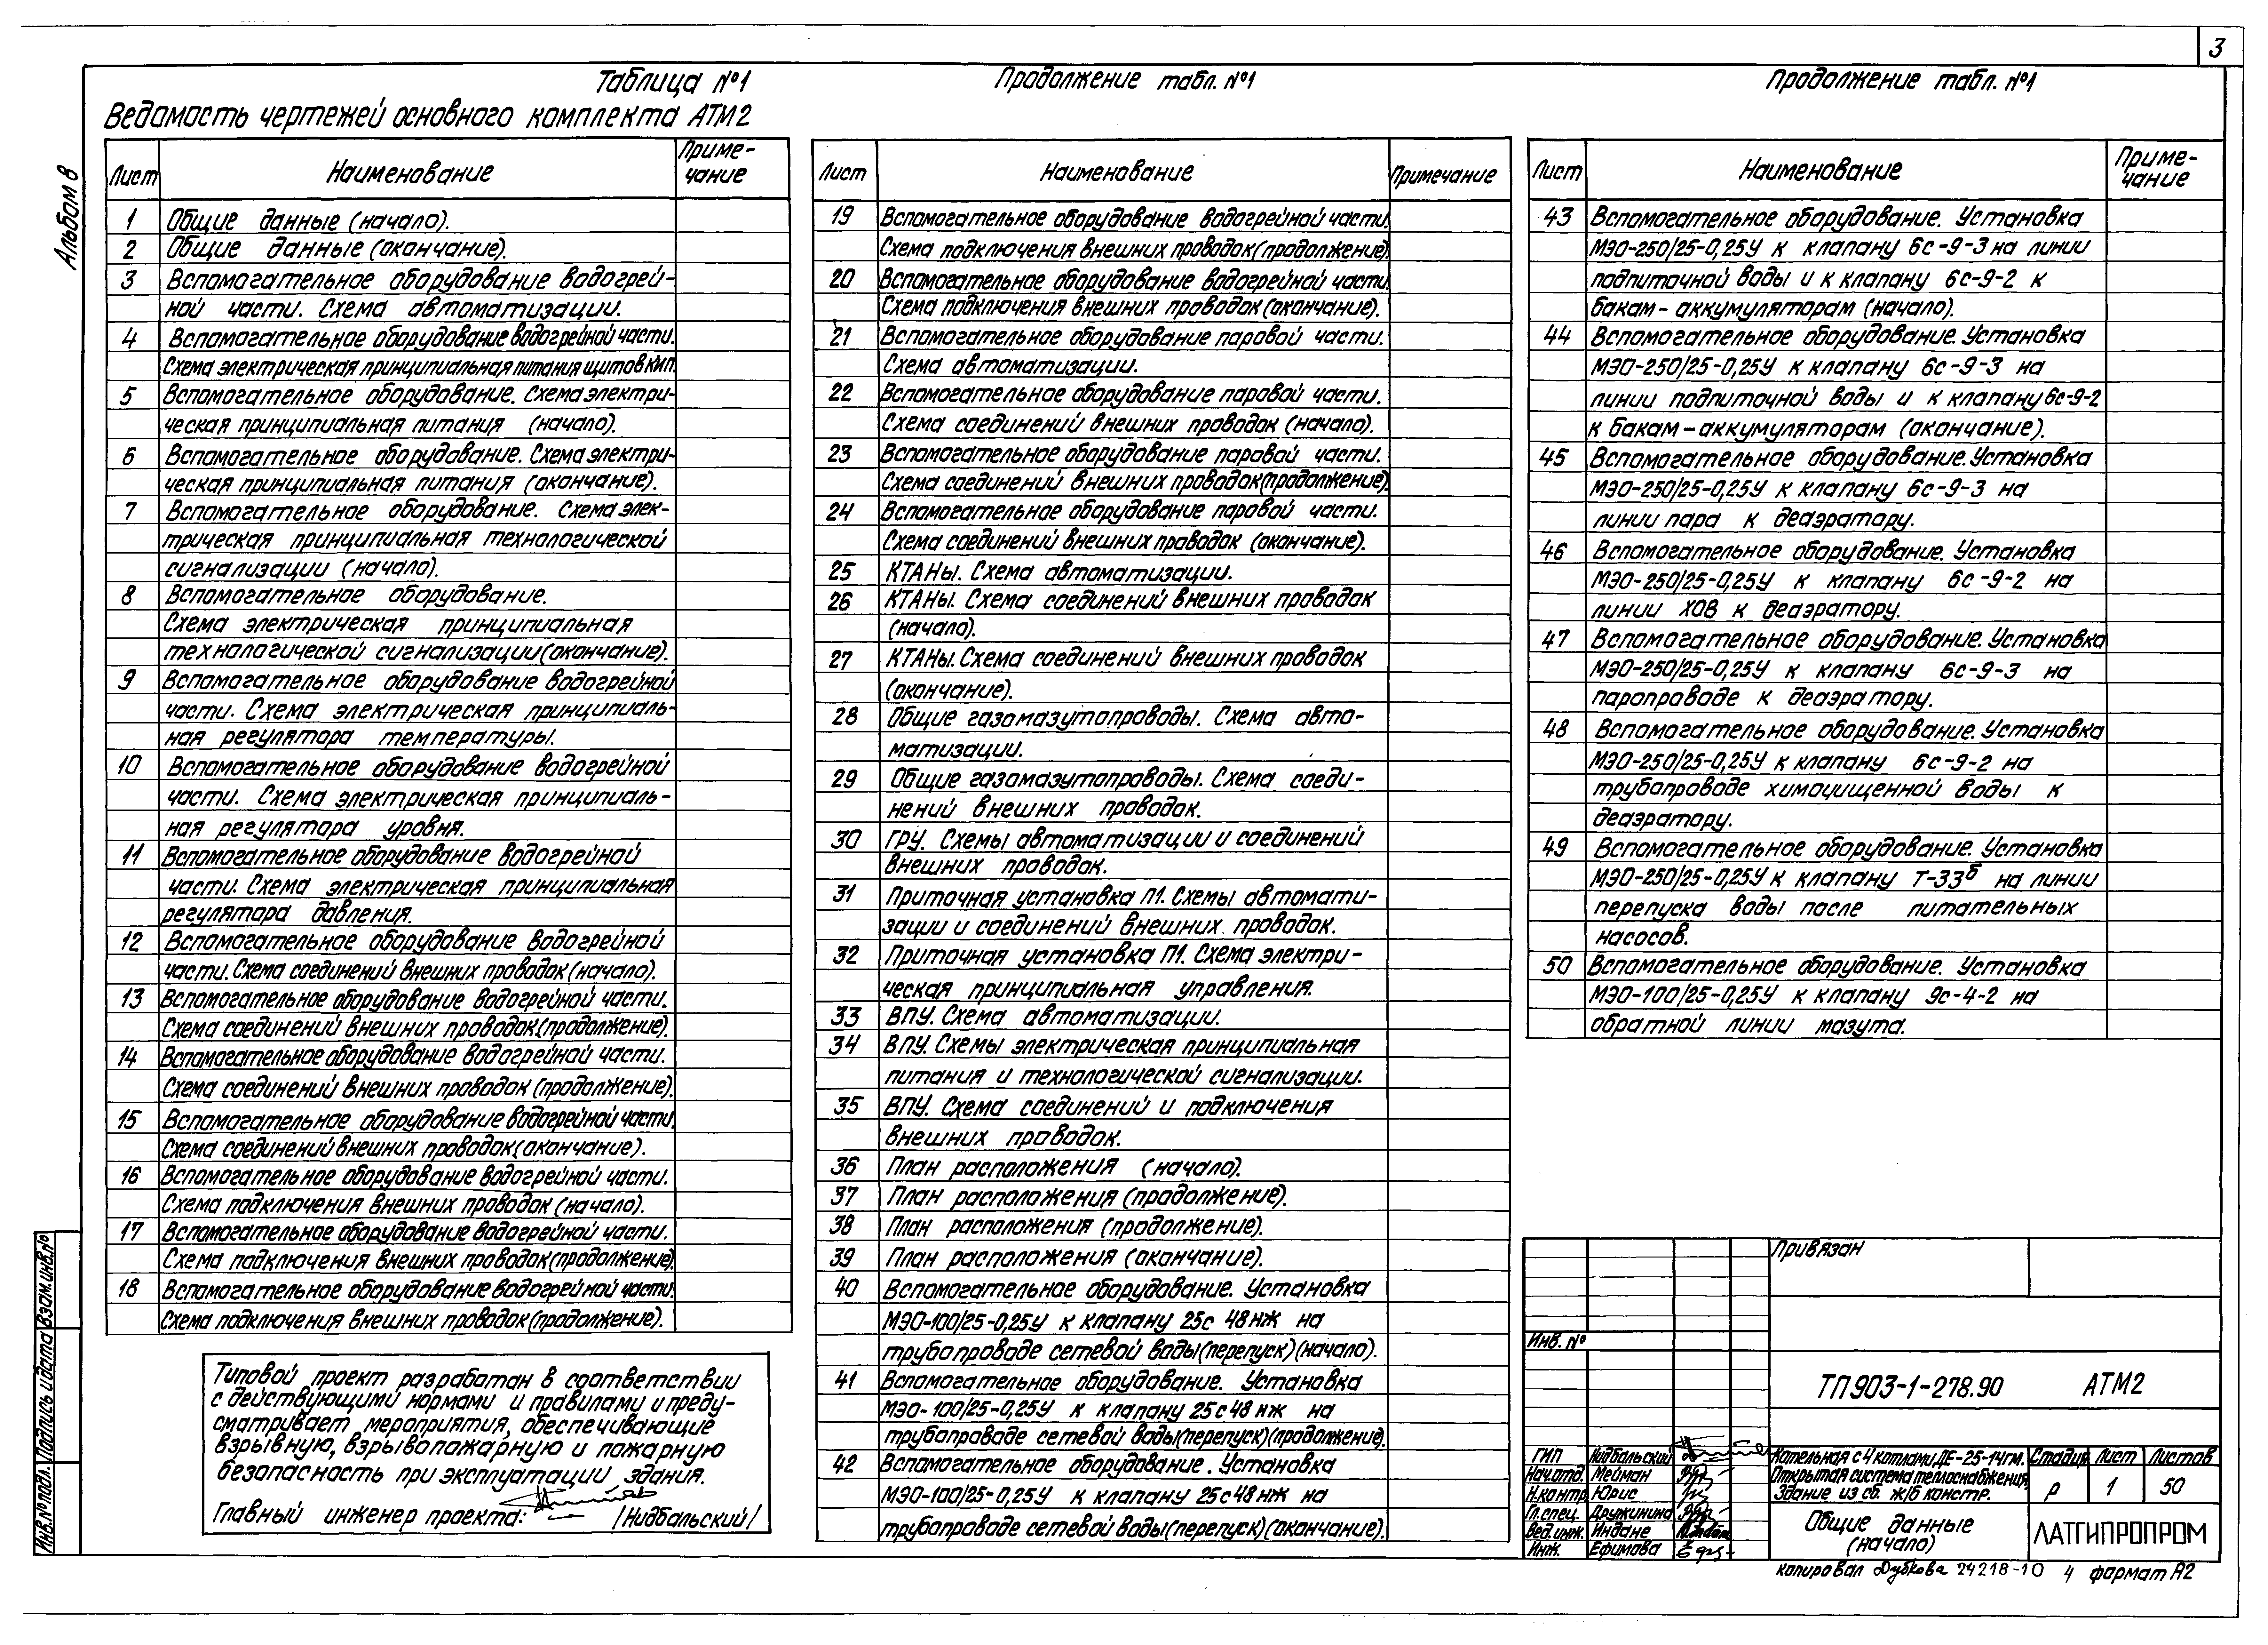 3
Альбом 8
Таблица №1
Ведомость чертежей основного комплекта АТМ2
Лист Наименование Приме-
чание
1 Общие данные (начало).
2 Общие данные (окончание).
3 Вспомогательное оборудование водогрей-
ной части. Схема автоматизации.
4 Вспомогательное оборудование водогрейной части.
Схема электрическая принципиальная питания щитов КИП.
5 Вспомогательное оборудование. Схема электри-
ческая принципиальная питания (начало).
6 Вспомогательное оборудование. Схема электри-
ческая принципиальная питания (окончание).
7 Вспомогательное оборудование. Схема элек-
трическая принципиальная технологической
сигнализации (начало).
8 Вспомогательное оборудование.
Схема электрическая принципиальная
технологической сигнализации (окончание).
9 Вспомогательное оборудование водогрейной
части. Схема электрическая принципиаль-
ная регулятора температуры.
10 Вспомогательное оборудование водогрейной
части. Схема электрическая принципиаль-
ная регулятора уровня.
11 Вспомогательное оборудование водогрейной
части. Схема электрическая принципиальная
регулятора давления.
12 Вспомогательное оборудование водогрейной
части. Схема соединений внешних проводок (начало).
13 Вспомогательное оборудование водогрейной части.
Схема соединений внешних проводок (продолжение).
14 Вспомогательное оборудование водогрейной части.
Схема соединений внешних проводок (продолжение).
15 Вспомогательное оборудование водогрейной части.
Схема соединений внешних проводок (окончание).
16 Вспомогательное оборудование водогрейной части.
Схема подключения внешних проводок (начало).
17 Вспомогательное оборудование водогрейной части.
Схема подключения внешних проводок (продолжение).
18 Вспомогательное оборудование водогрейной части.
Схема подключения внешних проводок (продолжение).
Типовой проект разработан в соответствии
с действующими нормами и правилами и преду-
сматривает мероприятия, обеспечивающие
взрывную, взрывопожарную и пожарную
безопасность при эксплуатации здания.
Главный инженер проекта: /Нидбальский/
Продолжение табл. №1
Лист Наименование Примечание
19 Вспомогательное оборудование водогрейной части.
Схема подключения внешних проводок (продолжение).
20 Вспомогательное оборудование водогрейной части.
Схема подключения внешних проводок (окончание).
21 Вспомогательное оборудование паровой части.
Схема автоматизации.
22 Вспомогательное оборудование паровой части.
Схема соединений внешних проводок (начало).
23 Вспомогательное оборудование паровой части.
Схема соединений внешних проводок (продолжение).
24 Вспомогательное оборудование паровой части.
Схема соединений внешних проводок (окончание).
25 КТАНы. Схема автоматизации.
26 КТАНы. Схема соединений внешних проводок
(начало).
27 КТАНы. Схема соединений внешних проводок
(окончание).
28 Общие газомазутопроводы. Схема авто-
матизации.
29 Общие газомазутопроводы. Схема соеди-
нений внешних проводок.
30 ГРУ. Схемы автоматизации и соединений
внешних проводок.
31 Приточная установка П1. Схемы автомати-
зации и соединений внешних проводок.
32 Приточная установка П1. Схема электри-
ческая принципиальная управления.
33 ВПУ. Схема автоматизации.
34 ВПУ. Схемы электрическая принципиальная
питания и технологической сигнализации.
35 ВПУ. Схема соединений и подключения
внешних проводок.
36 План расположения (начало).
37 План расположения (продолжение).
38 План расположения (продолжение).
39 План расположения (окончание).
40 Вспомогательное оборудование. Установка
МЭО-100/25-0,25У к клапану 25с 48нж на
трубопроводе сетевой воды (перепуск) (начало).
41 Вспомогательное оборудование. Установка
МЭО-100/25-0,25У к клапану 25с48нж на
трубопроводе сетевой воды (перепуск) (продолжение).
42 Вспомогательное оборудование. Установка
МЭО-100/25-0,25У к клапану 25с48нж на
трубопроводе сетевой воды (перепуск) (окончание).
Продолжение табл. №1
Лист Наименование Приме-
чание
43 Вспомогательное оборудование. Установка
МЭО-250/25-0,25У к клапану 6с-9-3 на линии
подпиточной воды и к клапану 6с-9-2 к
бакам-аккумуляторам (начало).
44 Вспомогательное оборудование. Установка
МЭО-250/25-0,25У к клапану 6с-9-3 на
линии подпиточной воды и к клапану 6с-9-2
к бакам-аккумуляторам (окончание).
45 Вспомогательное оборудование. Установка
МЭО-250/25-0,25У к клапану 6с-9-3 на
линии пара к деаэратору.
46 Вспомогательное оборудование. Установка
МЭО-250/25-0,25У к клапану 6с-9-2 на
линии ХОВ к деаэратору.
47 Вспомогательное оборудование. Установка
МЭО-250/25-0,25У к клапану 6с-9-3 на
паропроводе к деаэратору.
48 Вспомогательное оборудование. Установка
МЭО-250/25-0,25У к клапану 6с-9-2 на
трубопроводе химочищенной воды к
деаэратору.
49 Вспомогательное оборудование. Установка
МЭО-250/25-0,25У к клапану Т-33б на линии
перепуска воды после питательных
насосов.
50 Вспомогательное оборудование. Установка
МЭО-100/25-0,25У к клапану 9с-4-2 на
обратной линии мазута.
Привязан
Инв. №
ТП 903-1-278.90 АТМ2
ГИП Нидбальский
Нач.отд. Мейман
Н.контр. Юрис
Гл.спец. Дружинина
Вед.инж. Индане
Инж. Ефимова
Котельная с 4 котлами ДЕ-25-14ГМ.
Открытая система теплоснабжения.
Здание из сб. ж/б констр.
Стадия Лист Листов
Р 1 50
Общие данные
(начало)
ЛАТГИПРОПРОМ
копировал Дубкова 24218-10 4 формат А2
Инв.№ подл. Подпись и дата Взам.инв.№